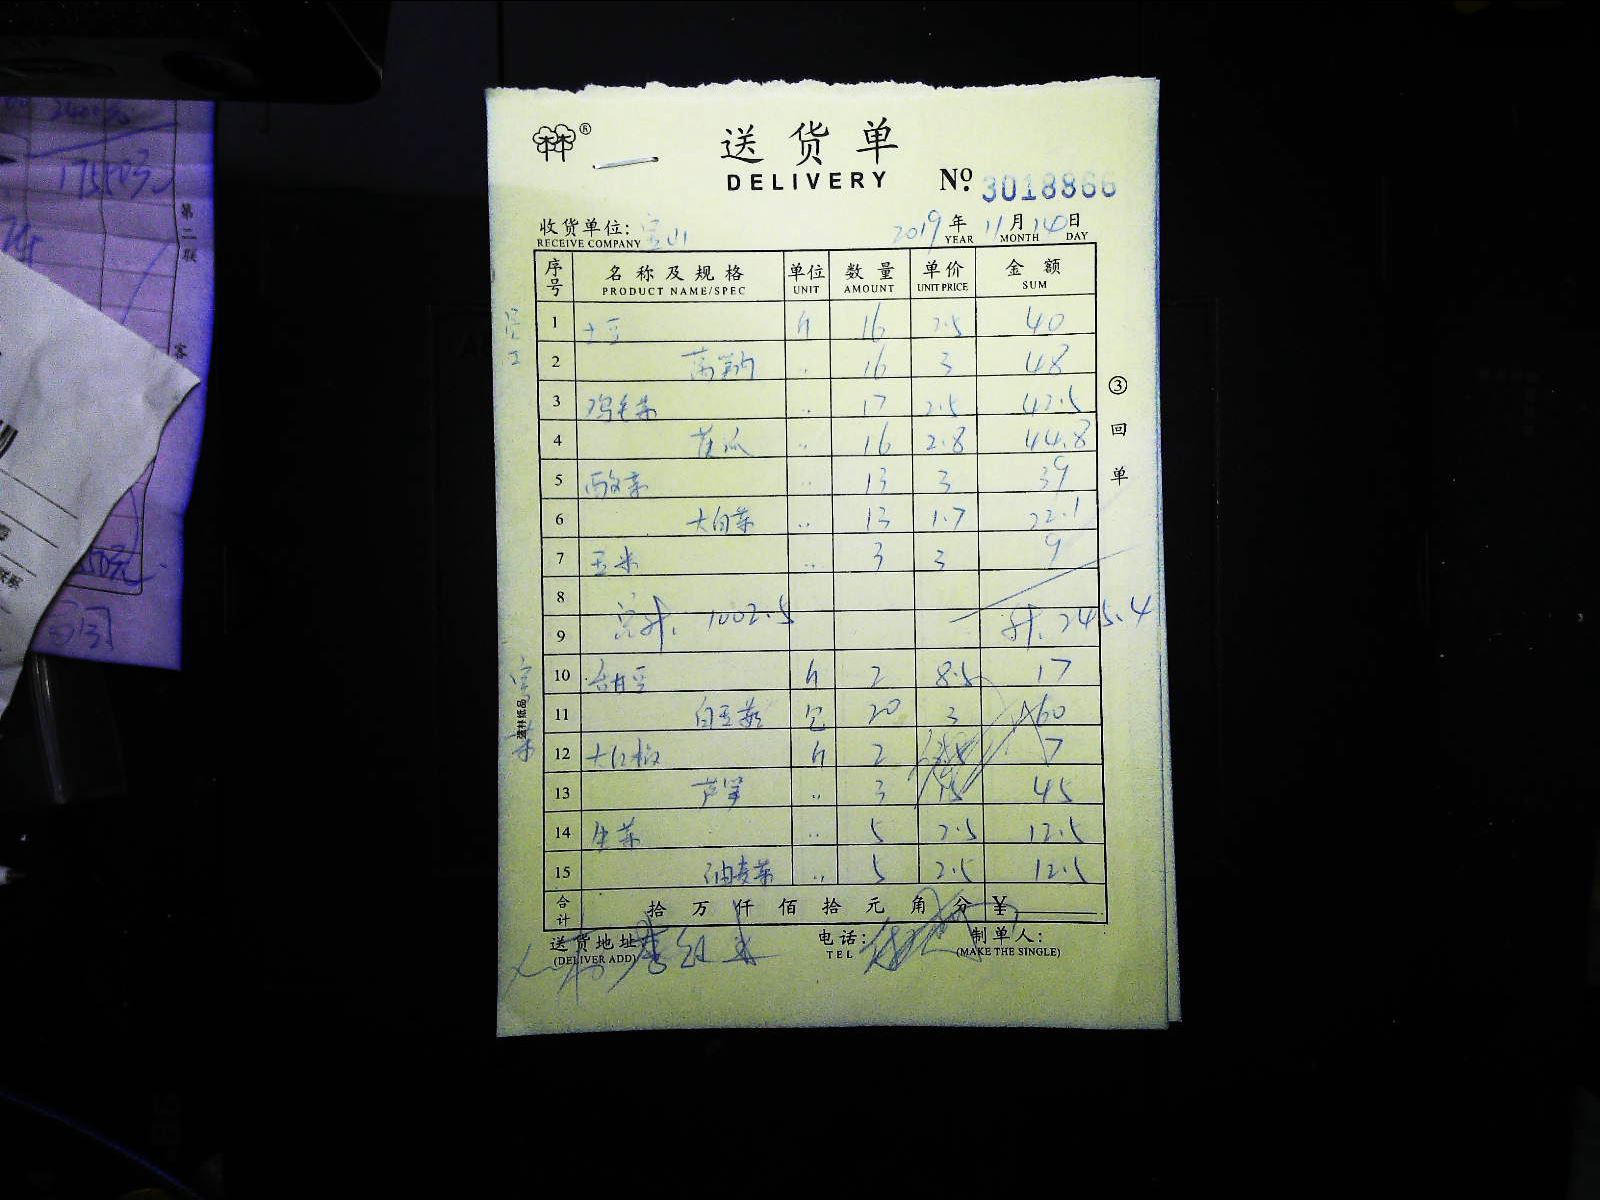 送货单
DELIVERY
No. 3018866
收货单位: 宝山 2019年11月14日
RECEIVE COMPANY YEAR MONTH DAY
序号 名称及规格 单位 数量 单价 金额
PRODUCT NAME/SPEC UNIT AMOUNT UNIT PRICE SUM
1 土豆 斤 16 2.5 40
2 莴笋肉 .. 16 3 48
3 鸡毛菜 .. 17 2.5 42.5
4 黄瓜 .. 16 2.8 44.8
5 .. 13 3 39
6 大白菜 .. 13 1.7 22.1
7 玉米 .. 3 3 9
8
9 1002.5 计. 245.4
10 斤 2 8.5 17
11 白玉菇 包 20 3 60
12 大红椒 斤 2 7
13 芦笋 .. 3 15 45
14 生菜 .. 5 2.5 12.5
15 油麦菜 .. 5 2.5 12.5
合计 拾 万 仟 佰 拾 元 角 分 ¥
送货地址: 电话: 制单人:
(DELIVER ADD) TEL (MAKE THE SINGLE)
③回单
强林纸品
第二联
客
17550元